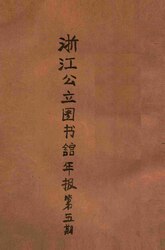 浙江公立图书馆年报第五期